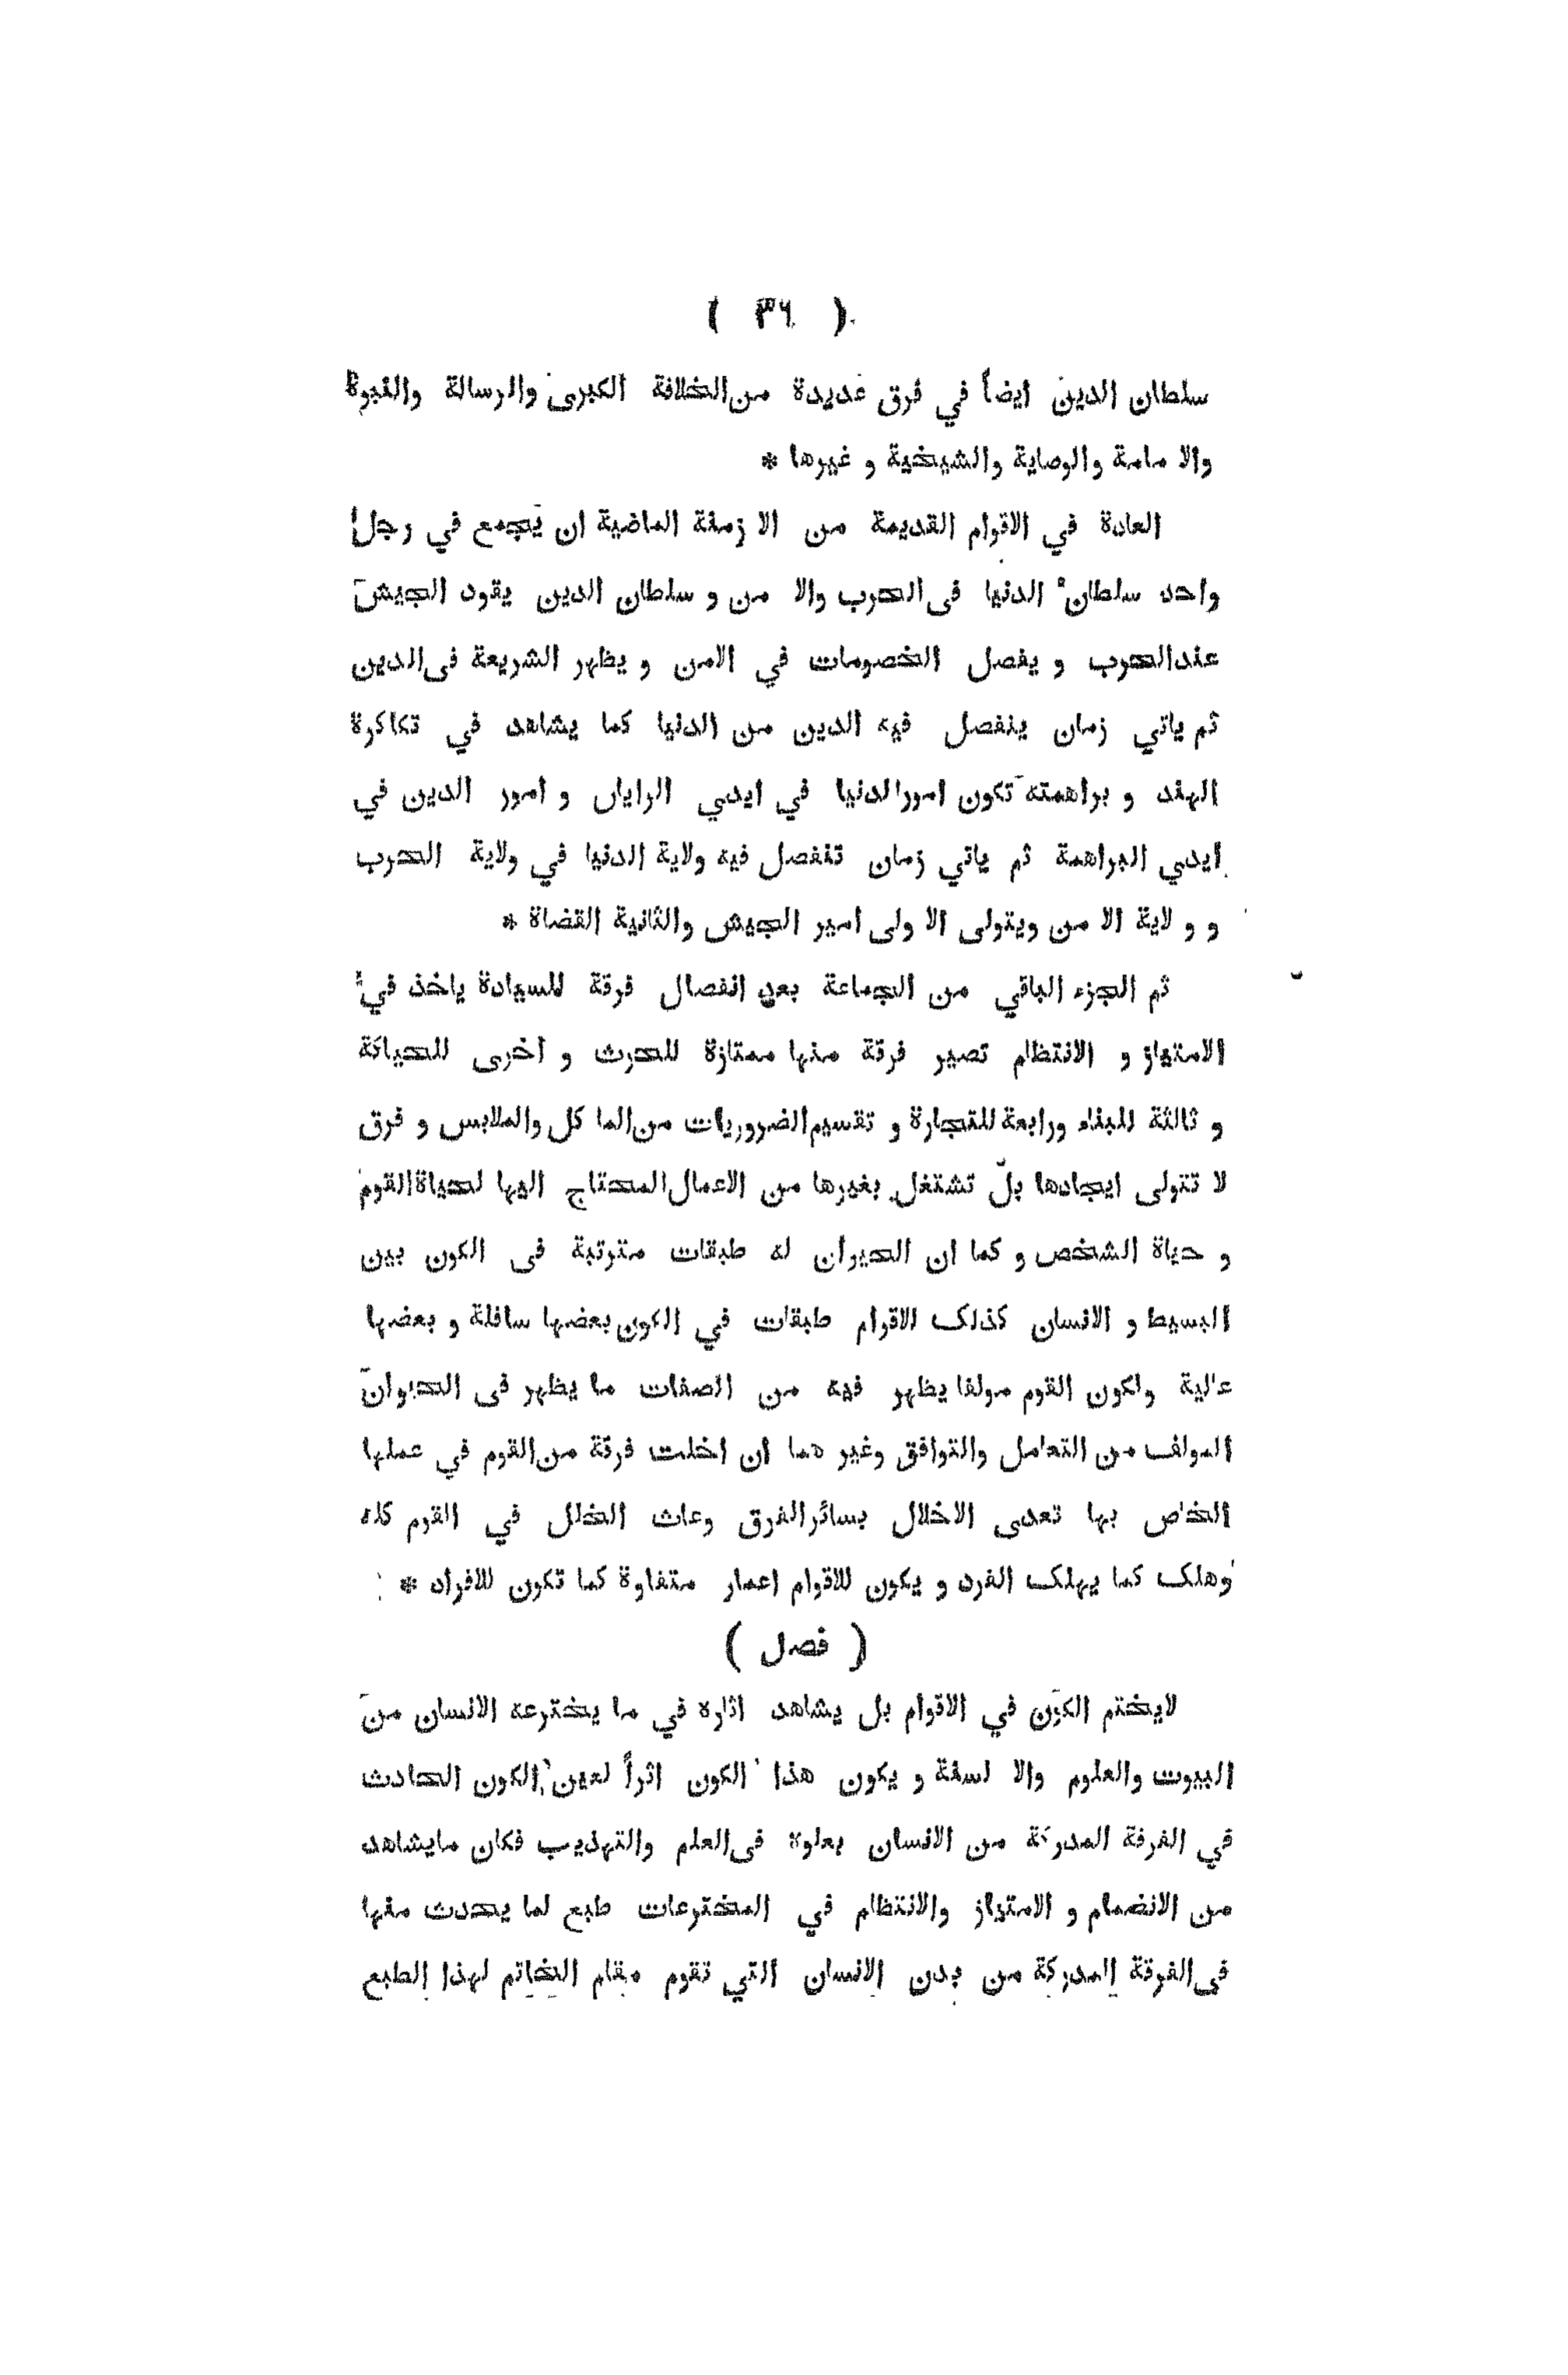 ( ٣٦ )
سلطان الدين ايضاً في فرق عديدة من الخلافة الكبرى والرسالة والنبوة
والا مامة والوصاية والشيخية و غيرها *
العادة في الاقوام القديمة من الا زمنة الماضية ان يجمع في رجل
واحد سلطان الدنيا فى الحرب والا من و سلطان الدين يقود الجيش
عند الحرب و يفصل الخصومات في الامن و يظهر الشريعة فى الدين
ثم ياتي زمان ينفصل فيه الدين من الدنيا كما يشاهد في تكاكرة
الهند و براهمته تكون امور الدنيا في ايدي الرايان و امور الدين في
ايدي البراهمة ثم ياتي زمان تنفصل فيه ولاية الدنيا في ولاية الحرب
و و لاية الا من ويتولى الا ولى امير الجيش والثانية القضاة *
ثم الجزء الباقي من الجماعة بعد انفصال فرقة للسيادة ياخذ في
الامتياز و الانتظام تصير فرقة منها ممتازة للحرث و اخرى للحياكة
و ثالثة للبناء ورابعة للتجارة و تقسيم الضروريات من الما كل والملابس و فرق
لا تتولى ايجادها بل تشتغل بغيرها من الاعمال المحتاج اليها لحياة القوم
و حياة الشخص و كما ان الحيوان له طبقات مترتبة فى الكون بين
البسيط و الانسان كذلك الاقوام طبقات في الكون بعضها سافلة و بعضها
عالية ولكون القوم مولفا يظهر فيه من الصفات ما يظهر فى الحيوان
المولف من التعامل والتوافق وغير هما ان اخلت فرقة من القوم في عملها
الخاص بها تعدى الاخلال بسائر الفرق وعاث الخلل في القوم كله
وهلك كما يهلك الفرد و يكون للاقوام اعمار متفاوة كما تكون للافراد *
( فصل )
لايختم الكون في الاقوام بل يشاهد اثاره في ما يخترعه الانسان من
البيوت والعلوم والا لسنة و يكون هذا الكون اثراً لعين الكون الحادث
في الفرقة المدركة من الانسان بعلوه فى العلم والتهذيب فكان مايشاهد
من الانضمام و الامتياز والانتظام في المخترعات طبع لما يحدث منها
فى الفرقة المدركة من بدن الانسان التي تقوم مقام الخاتم لهذا الطبع